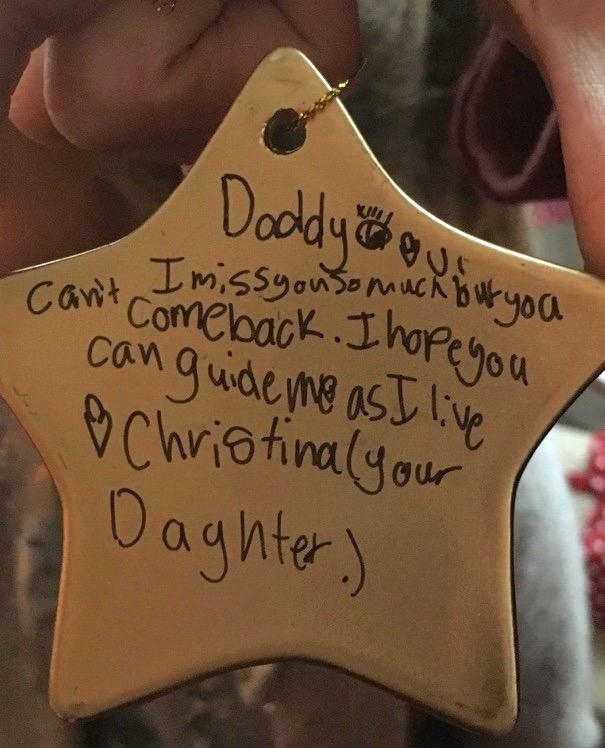 Daddy U
I miss you so much but you
can't comeback. I hope you
can guide me as I live
Christina (your
Daghter.)